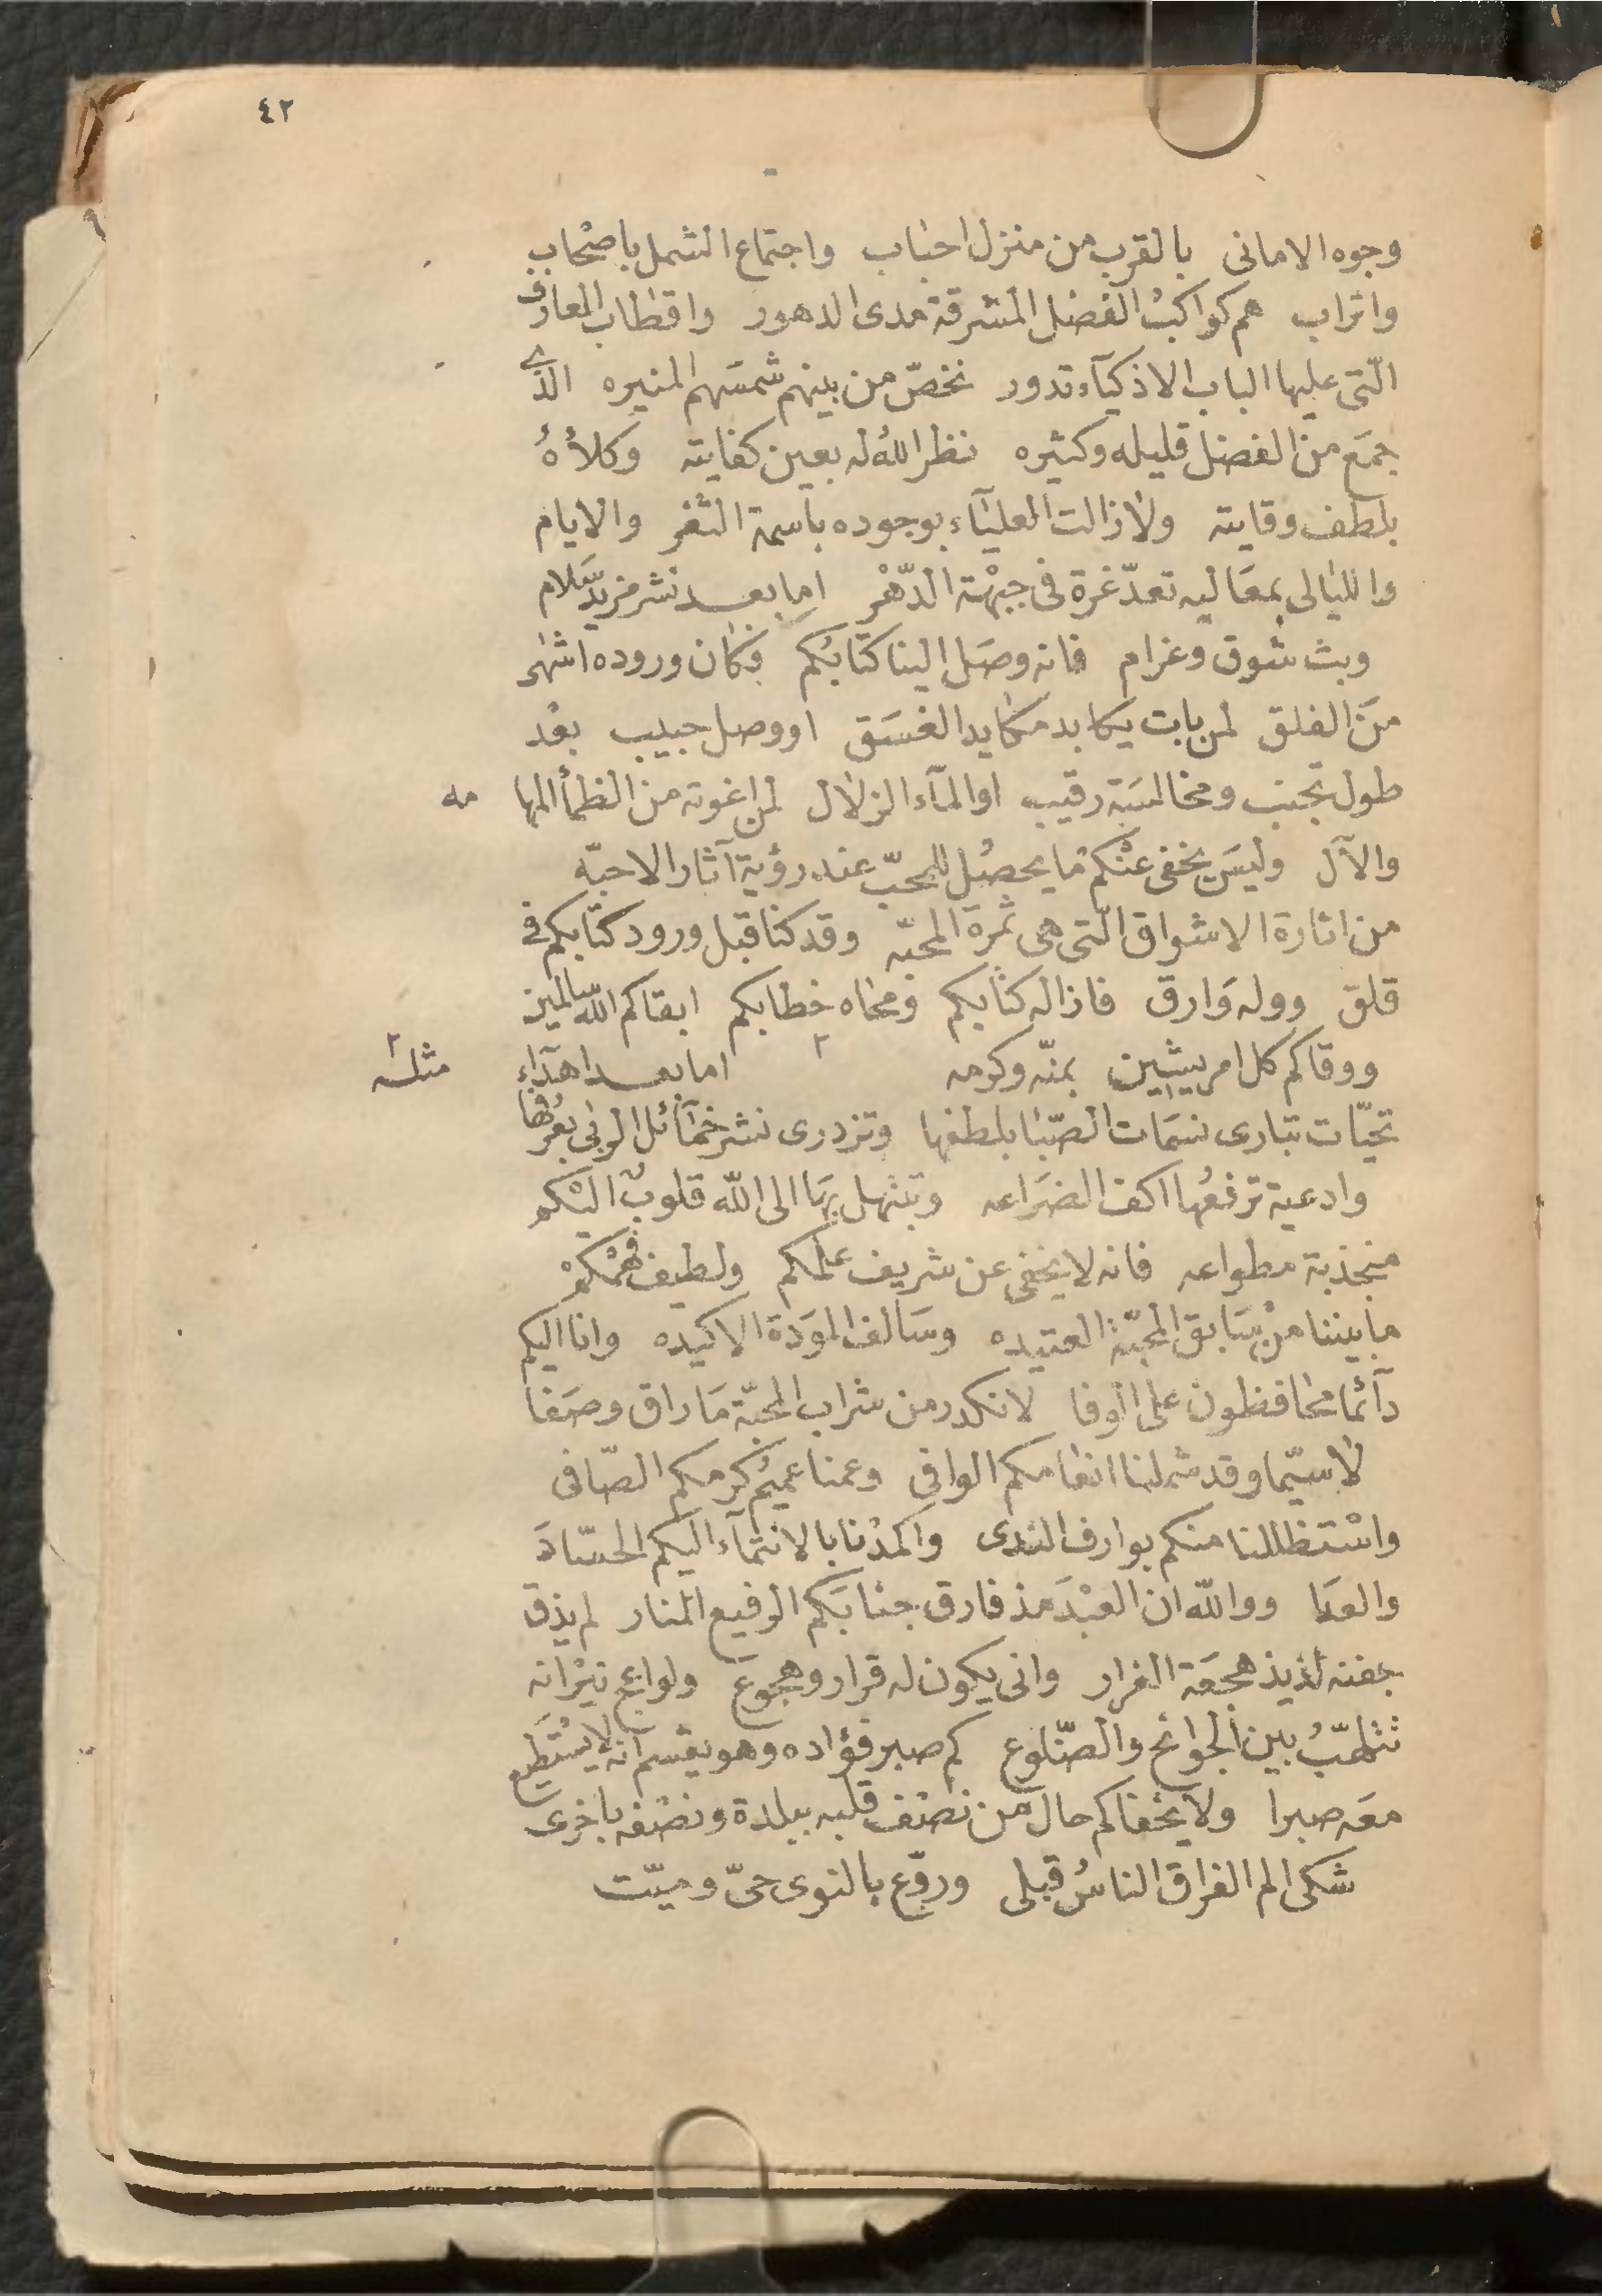 ٤٢
وجوه الاماني بالقرب من منزل احباب واجتماع الشمل باصحاب
واتراب هم كواكبُ الفضل المشرقة مدى الدهور واقطاب المعارف
الّتى عليها الباب الاذكيآء تدور نخصّ من بينهم شمسَهم المنيره الذى
جمَع من الفضل قليله وكثيره نظر اللهُ له بعين كفايته وكلأهُ
بلطف وقايته ولا زالت العليآء بوجوده باسمة الثغر والايام
والليالى بمعَاليه تعدّ غرة فى جبهْة الدّهْر اما بعد نشر مزيد سَلام
وبث شوق وغرام فانه وصَل الينا كتابُكم فكان وروده اشهى
منَ الفلق لمن بات يكابد مكايد الغسَق او وصل حبيب بعْد
طول تجنب ومخالسَة رقيب او المآء الزلال لمن اغوته من الظمأ المها مه
والآل وليسَ يخفى عنْكم مَا يحصُل للمحبّ عند رؤية آثار الاحبّه
من اثارة الاشواق الّتى هى ثمرة المحبّه وقد كنا قبل ورود كتابكم فى
قلق ووله وَارق فازاله كتابكم ومحاه خطابكم ابقاكم الله سالمين
ووقاكم كل امر يشين بمنّه وكرمه ٢ اما بعد اهدَآء
مثلـه ٢
تحيّات تبارى نسمَات الصّبا بلطفها وتزدرى نشر خمآئل الربى بعُرفها
وادعية ترفعُها اكف الضرَاعه وتبتهل بهَا الى اللّه قلوبٌ اليْكم
منجذبة مطواعه فانه لا يخفى عن شريف علمكم ولطيف فهْمكمْ
ما بيننا منْ سَابق المحبّة العتيده وسَالف الموَدة الاكيده وانا اليكم
دآئما محافظون على الوفا لا نكدر من شراب المحبّة مَا راق وصَفا
لا سيّما وقد شملنا انعامكم الوافى وعمنا عميمُ كرمكم الصّافى
واسْتظللنا منكم بوارف الندى واكمدْنا بالانتمآء اليكم الحسّادَ
والعدَا ووالله ان العبْدَ مذ فارق جنابَكم الرفيع المنار لم يذق
جفنه لذيذ هجعَة الغرار وانى يكون له قرار وهجوع ولواعج نيْرانه
تتلهّبُ بين الجوانح والضّلوع كم صبر فؤاده وهو يقسم انّه لا يسْتَطيع
معَه صبرا ولا يخفاكم حال من نصْف قلبه ببلدة ونصْفه باخرى
شكى الم الفراق الناسُ قبلى وروّع بالنوى حىّ وميّت